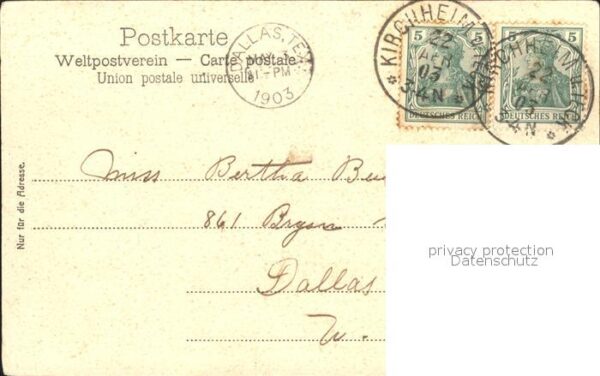 Postkarte
Weltpostverein — Carte postale
Union postale universelle
DALLAS, TEX.
1-PM
1903
KIRCHHEIM
22
APR
03
3-4N
5 5
DEUTSCHES REICH
5 5
DEUTSCHES REICH
KIRCHHEIM
22
03
3-4N
Nur für die Adresse.
Miss Bertha
861 Bryan
Dallas
privacy protection
Datenschutz